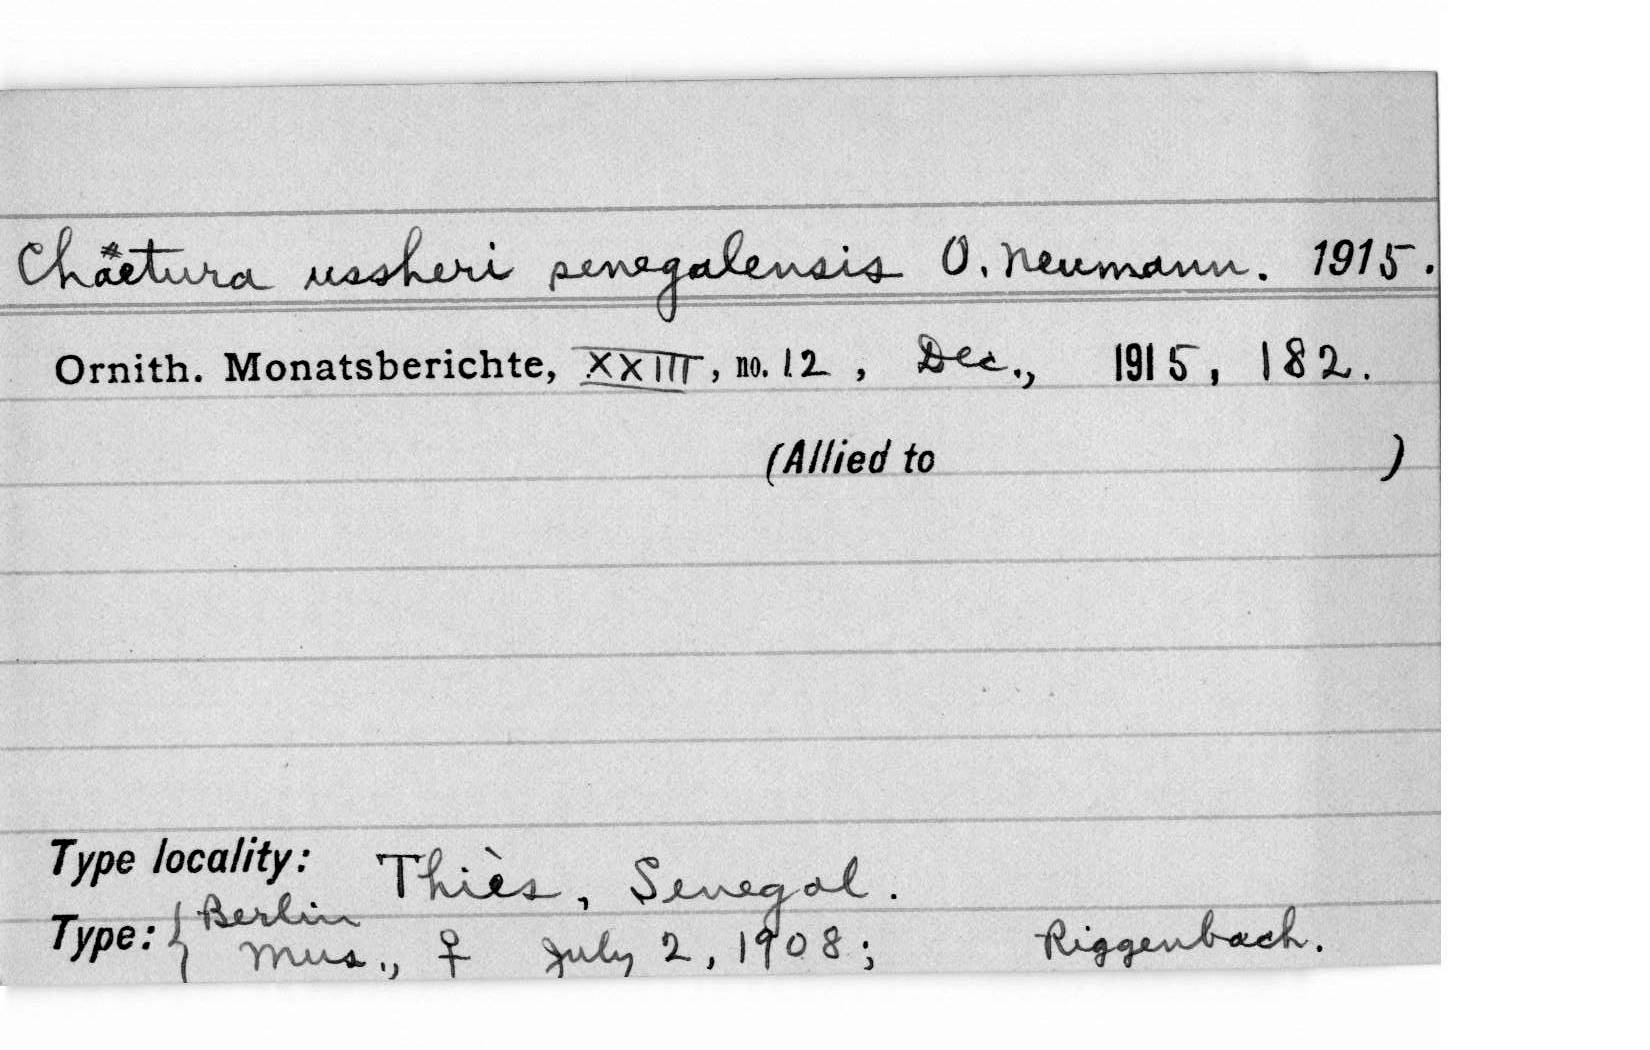 Chaetura ussheri senegalensis O. Neumann. 1915.
Ornith. Monatsberichte, XXIII, no. 12, Dec., 1915, 182.
(Allied to )
Type locality: Thiès, Senegal.
Type: { Berlin
Mus., ♀ July 2, 1908; Riggenbach.